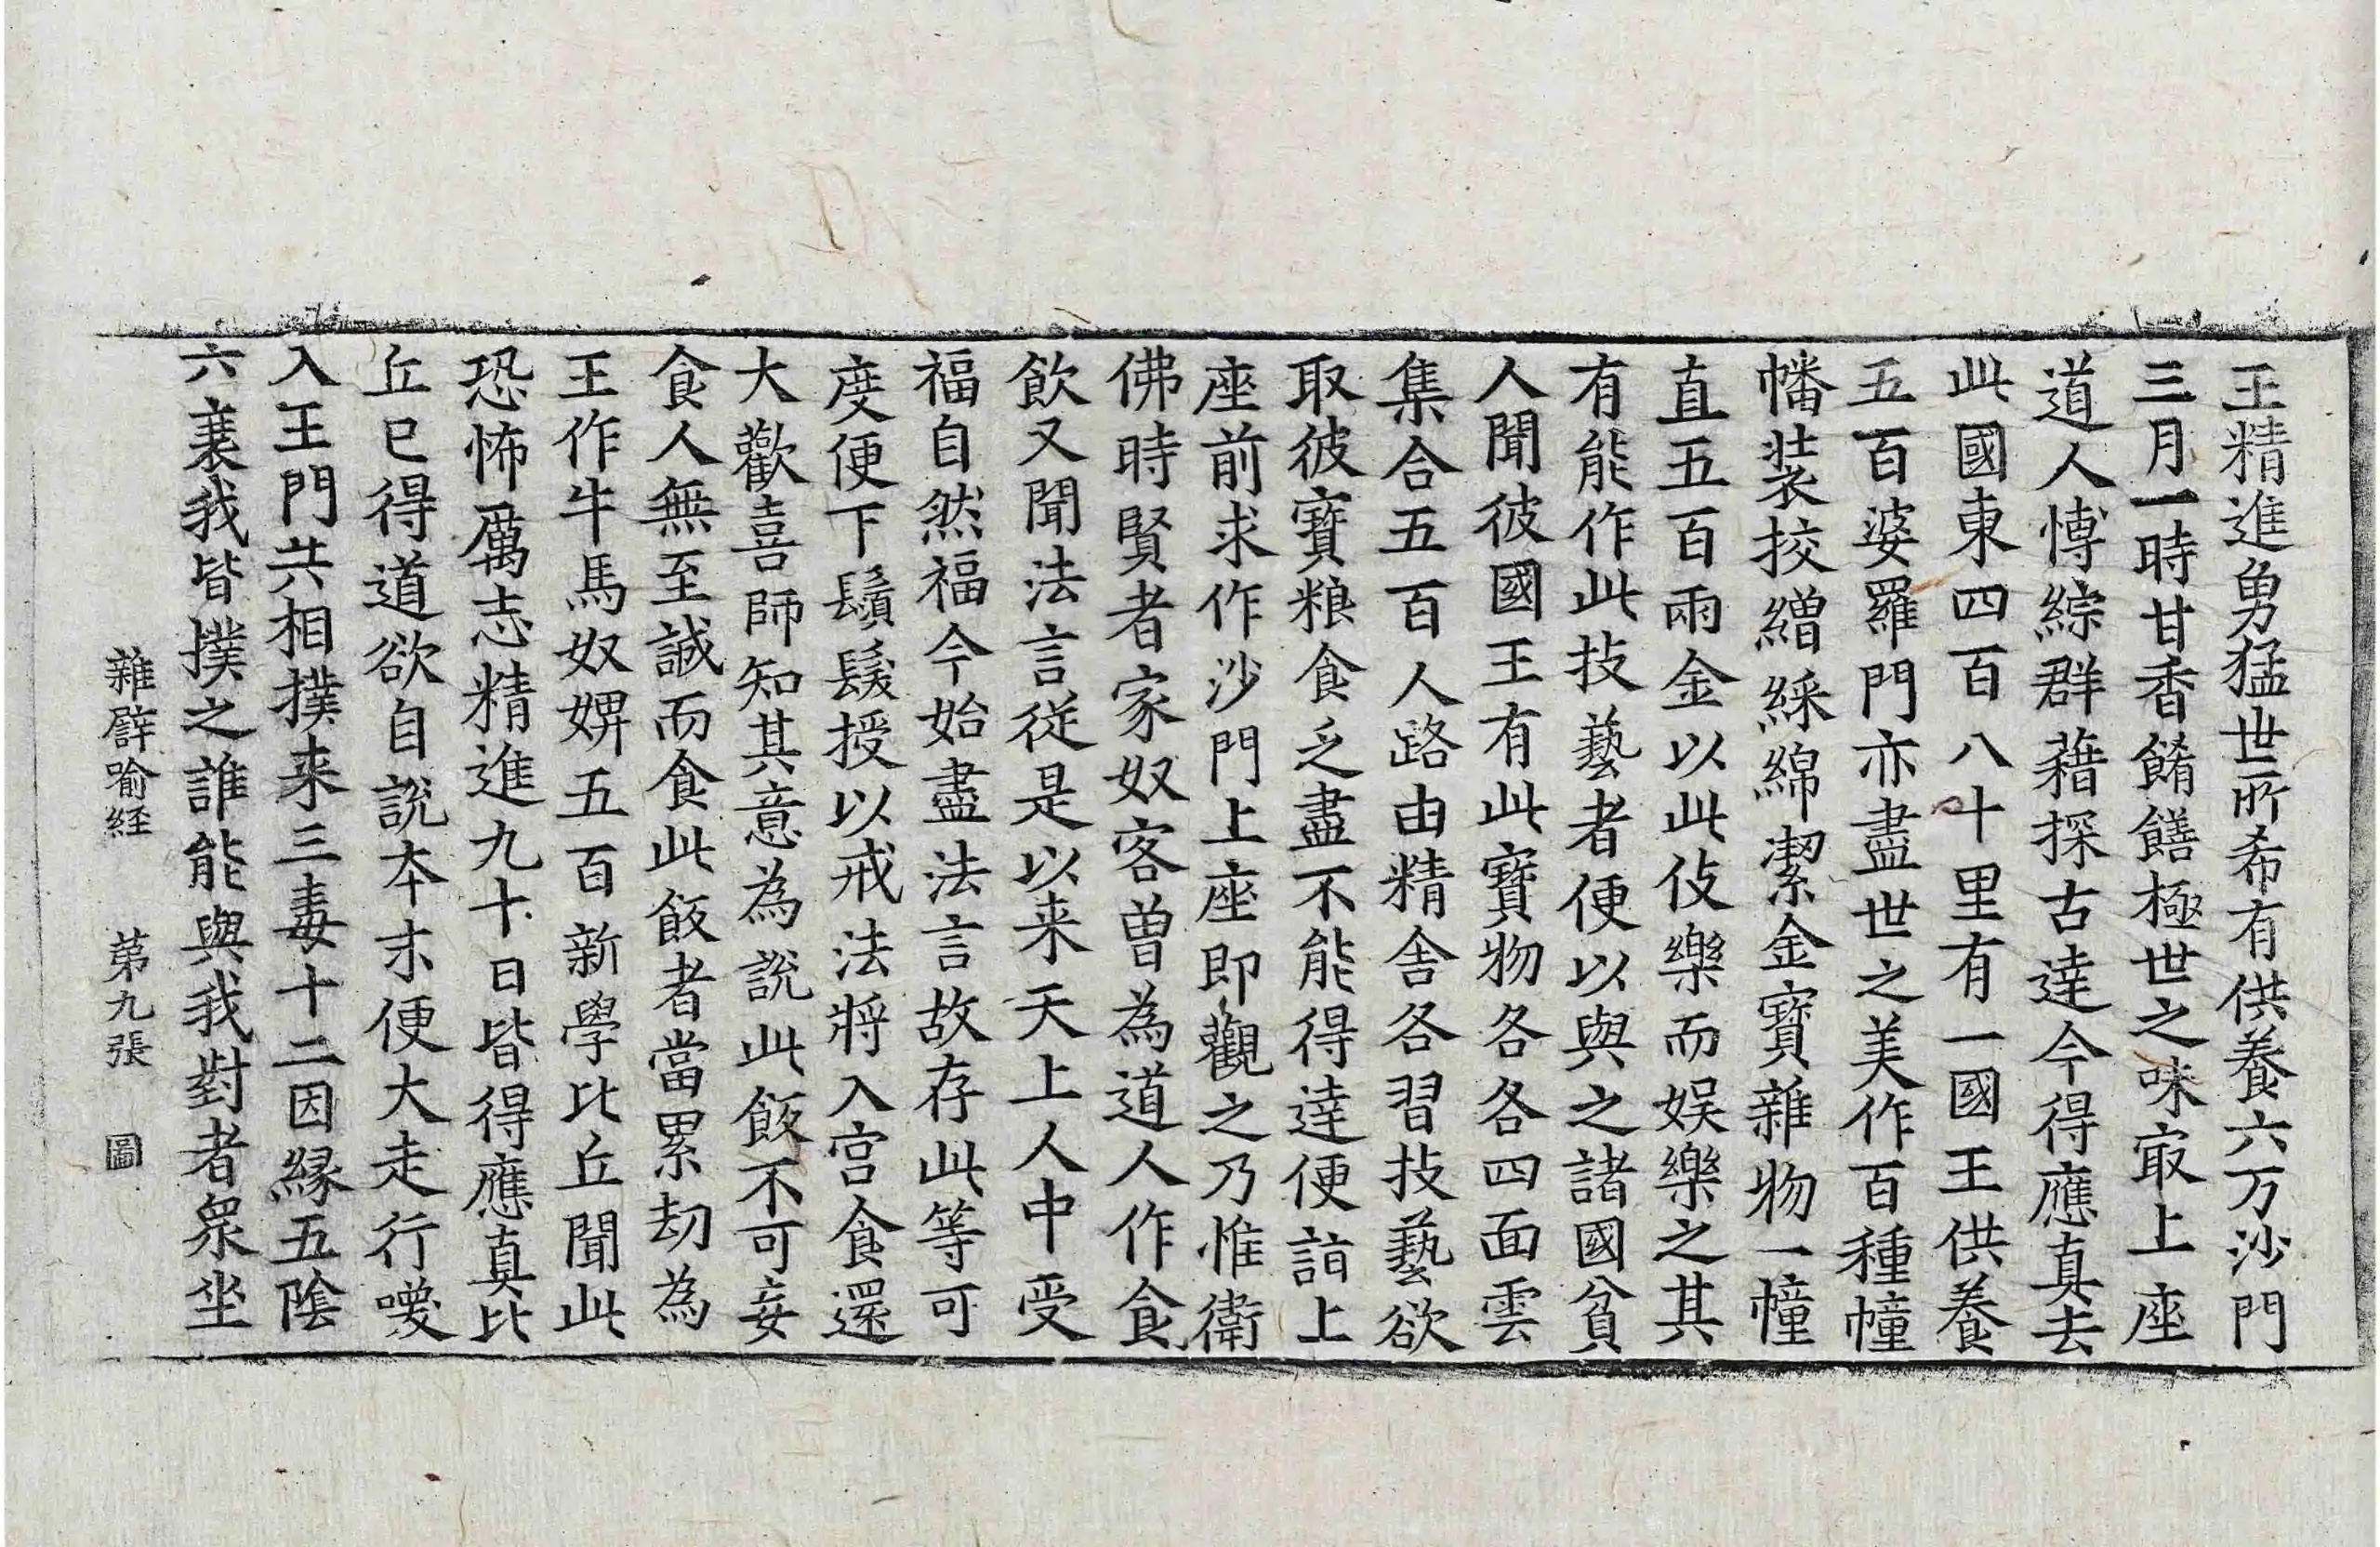 王精進勇猛世所希有供養六万沙門
三月一時甘香餚饍極世之味㝡上座
道人博綜群藉探古達今得應真去
此國東四百八十里有一國王供養
五百婆羅門亦盡世之美作百種幢
幡裝挍繒綵綿潔金寶雜物一幢
直五百兩金以此伎樂而娛樂之其
有能作此技藝者便以與之諸國貧
人聞彼國王有此寶物各各四面雲
集合五百人路由精舍各習技藝欲
取彼寶粮食乏盡不能得達便詣上
座前求作沙門上座即觀之乃惟衛
佛時賢者家奴客曾為道人作食
飲又聞法言從是以来天上人中受
福自然福今始盡法言故存此等可
度便下鬚髮授以戒法將入宮食還
大歡喜師知其意為說此飯不可妄
食人無至誠而食此飯者當累劫為
王作牛馬奴婢五百新學比丘聞此
恐怖厲志精進九十日皆得應真比
丘已得道欲自說本末便大走行嚶
入王門共相撲来三毒十二因緣五陰
六衰我皆撲之誰能與我對者衆坐
雜譬喻経　第九張　圖